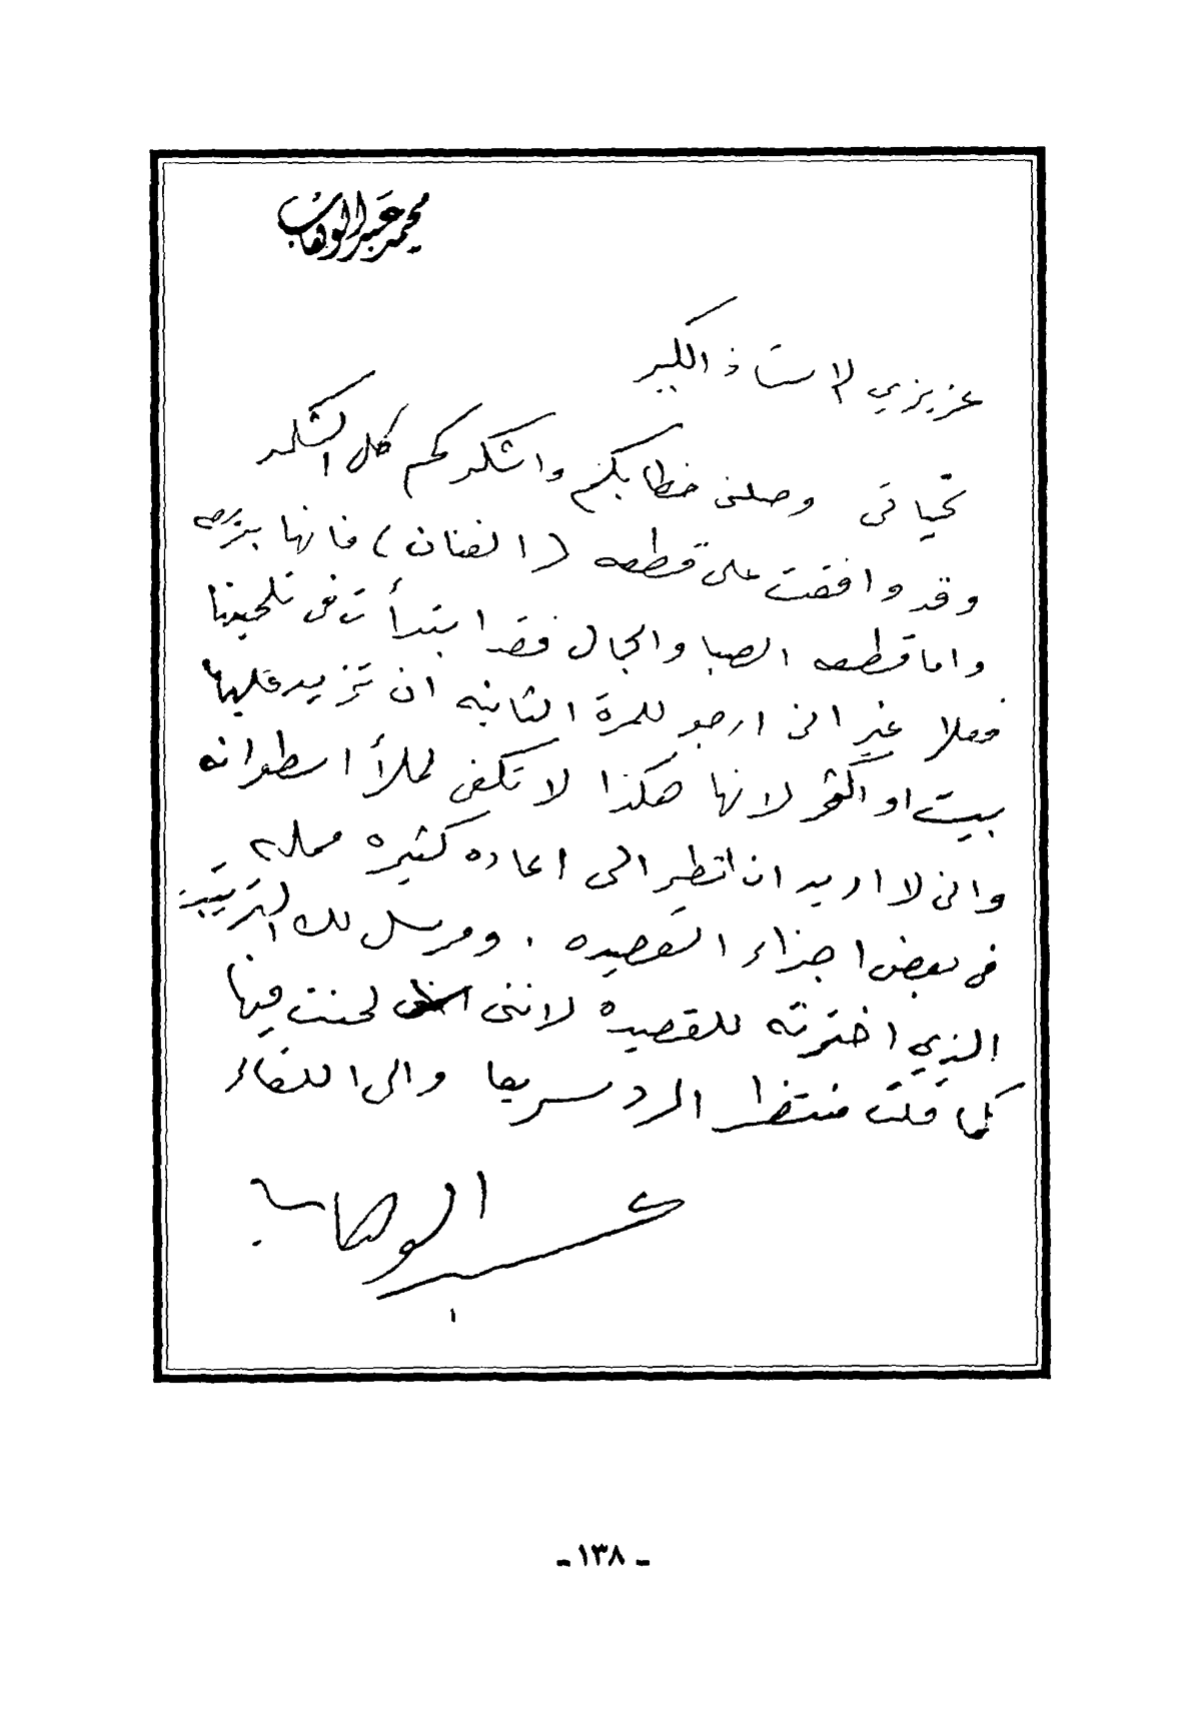 محمد عبد الوهاب
عزيزي الاستاذ الكبير
تحياتى وصلنى خطابكم واشكركم كل الشكر
وقد وافقت على قطعه (الفنان) فانها بديعه
واما قطعه الصبا والجمال فقد ابتدأت فى تلحينها
فعلا غير انى ارجو للمرة الثانيه ان تزيد عليها
بيت او اكثر لانها هكذا لا تكفى لملأ اسطوانه
وانى لا اريد ان اضطر الى اعاده كثيره ممله
فى بعض اجزاء القصيده . ومرسل لك الترتيب
الذي اخترته للقصيده لاننى لحنت فيها
كما قلت منتظرا الرد سريعا والى اللقاء
عبد الوهاب
- ١٣٨ -